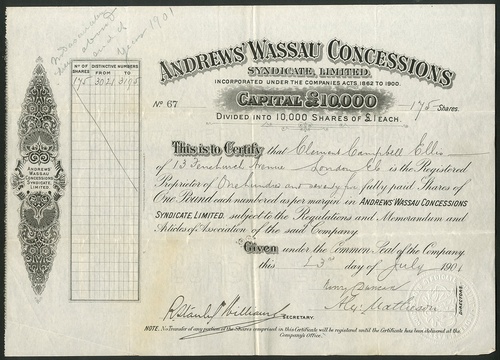 1901
ANDREWS' WASSAU CONCESSIONS
SYNDICATE, LIMITED.
INCORPORATED UNDER THE COMPANIES ACTS, 1862 TO 1900.
CAPITAL £10,000
No 67
175 Shares.
DIVIDED INTO 10,000 SHARES OF £1 EACH.
No OF SHARES
DISTINCTIVE NUMBERS
FROM TO
175 3021 3195
ANDREWS'
WASSAU
CONCESSIONS
SYNDICATE,
LIMITED.
This is to Certify that Clement Campbell Ellis
of 13 Fenchurch Avenue London E.C. is the Registered
Proprietor of One hundred and seventy five fully paid Shares of
One Pound each numbered as per margin in ANDREWS' WASSAU CONCESSIONS
SYNDICATE, LIMITED, subject to the Regulations and Memorandum and
Articles of Association of the said Company.
Given under the Common Seal of the Company
this day of July 1901
Alex. Matheson
DIRECTORS.
R Stanley Williams
SECRETARY.
NOTE. No Transfer of any portion of the Shares comprised in this Certificate will be registered until the Certificate has been delivered at the
Company's Office.